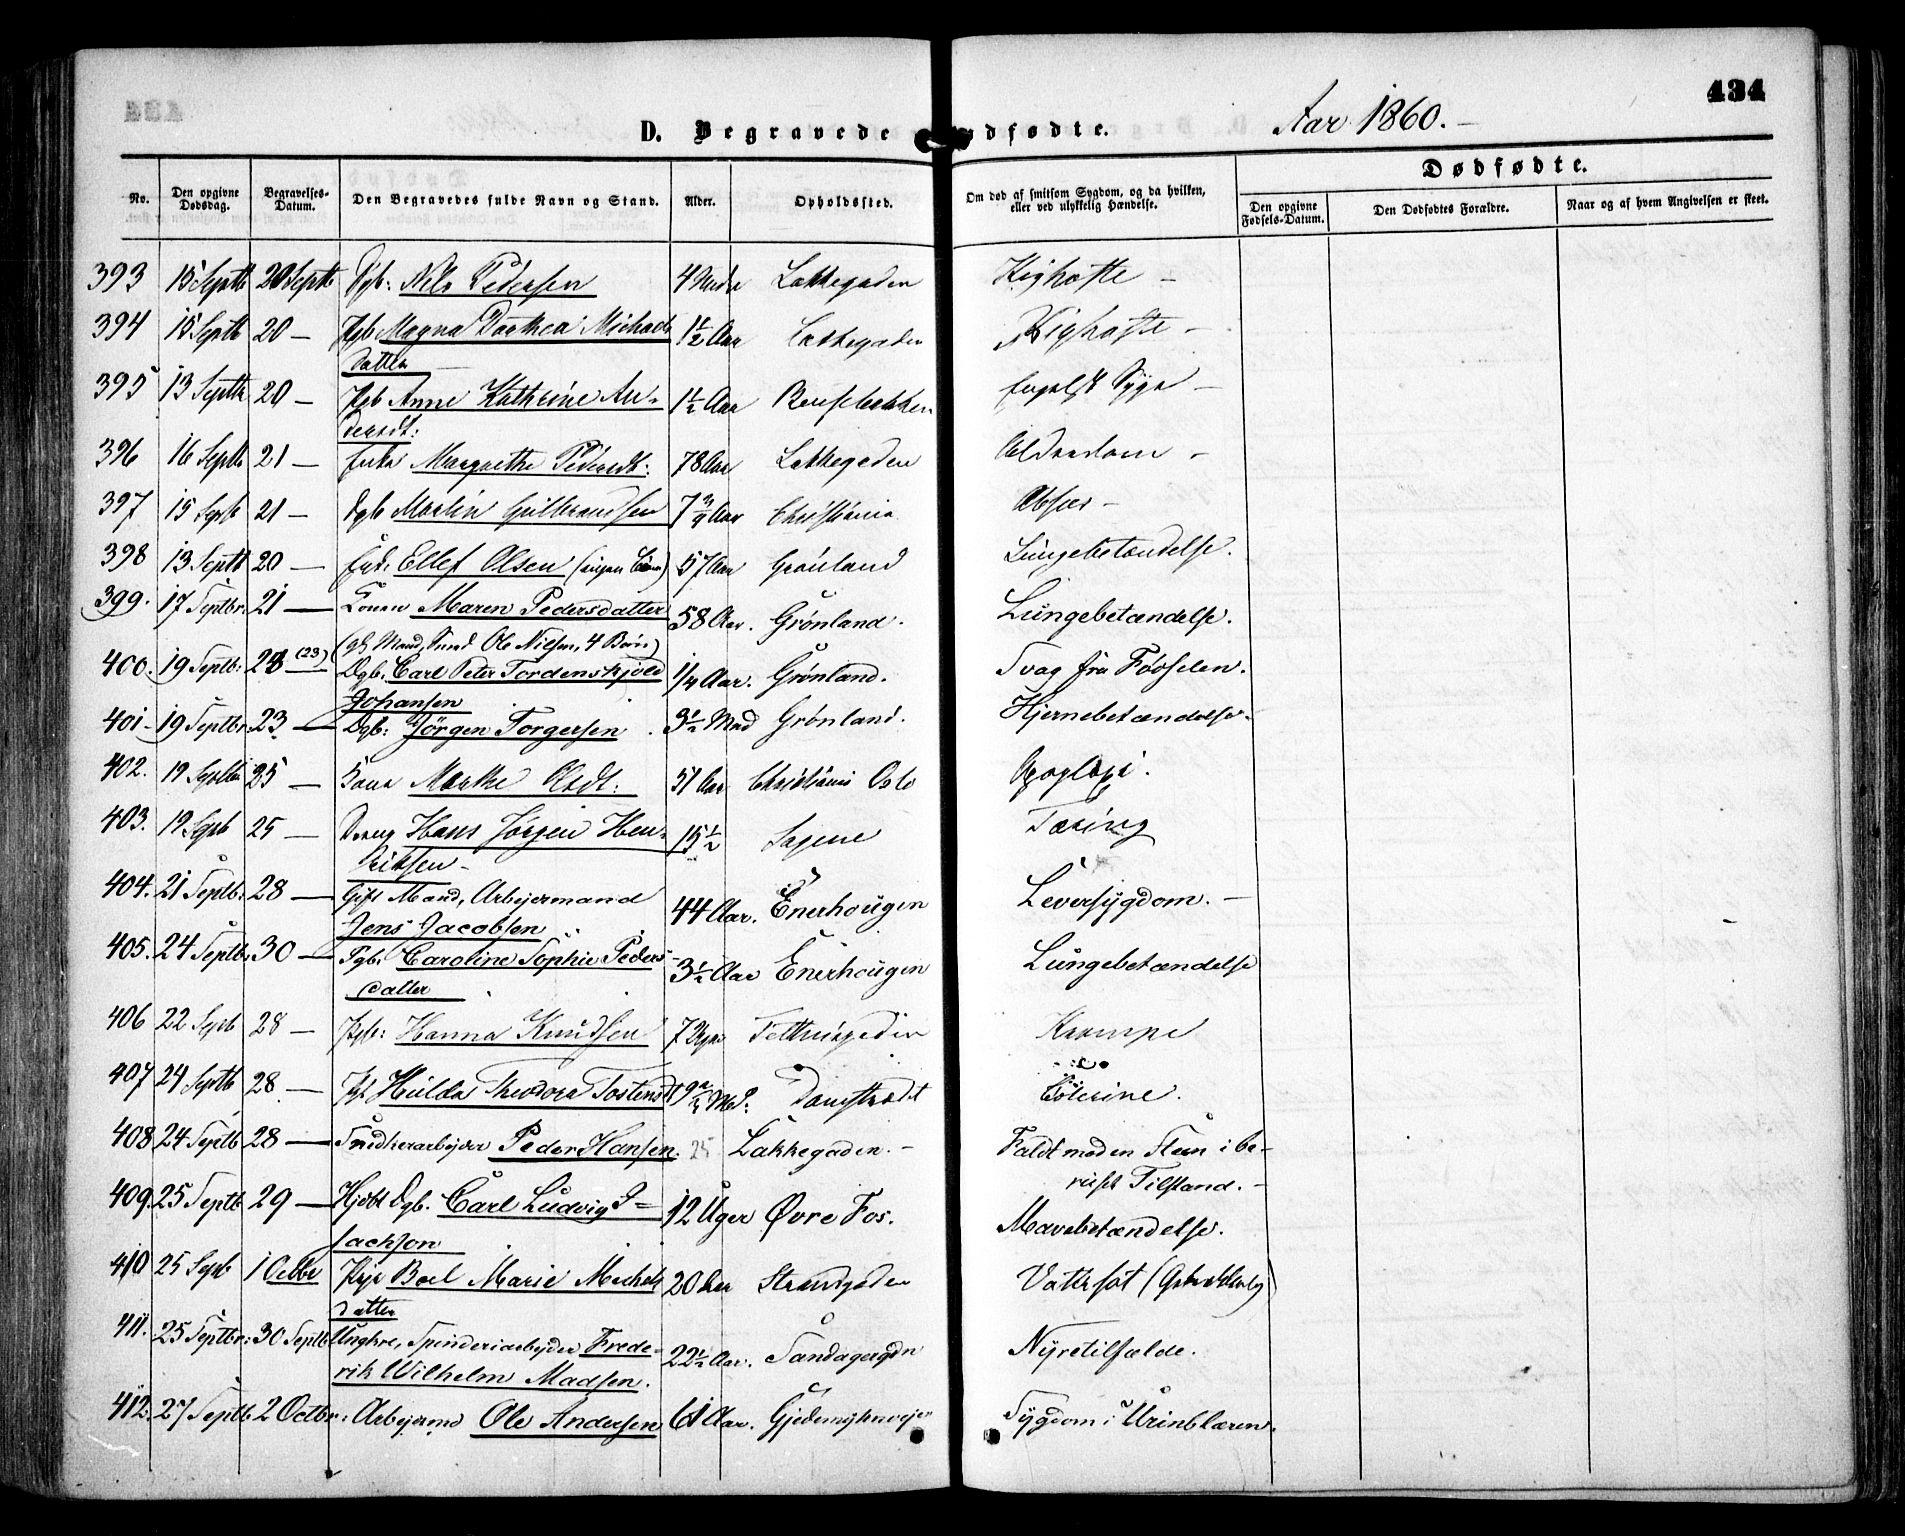 434
D. Begravede og Dødfødte. Aar 1860.
No. Den opgivne Dødsdag. Begravelses-Datum. Den Begravedes fulde Navn og Stand. Alder. Opholdssted. Om død af smitsom Sygdom, og da hvilken, eller ved ulykkelig Hændelse. Dødfødte. Den opgivne Fødsels-Datum. Den Dødfødtes Forældre. Naar og af hvem Angivelsen er skeet.
393 15 Septb 20 Septb Dgb: Nils Pedersen 4 Lakkegaden Kighoste —
394 15 Septb 20 — Pgb Magna Dorthea Michaels 1½ Aar Lakkegaden Kighoste —
datter
395 13 Septb 20 — Pgb Anne Kathrine An- 1½ Aar engelsk Syge —
dersdt:
396 16 Septb 21 — Enke Margrethe Pedersdt: 78 Aar Lakkegaden Alderdom —
397 15 Septb 21 — Dgb Martin Gulbrandsen 7 Aar Christiania —
398 13 Septb 20 — Ellef Olsen (ingen Børn) 57 Aar Grønland Lungebetændelse.
399. 17 Septbr. 21 — Konen Maren Pedersdatter 58 Aar. Grønland. Lungebetændelse.
(gl. Mand, Ole Nielsen, 4 Børn)
400. 19 Septb: 23 (23) Dgb. Carl Peter Tordenskjold 1/4 Aar. Grønland. Svag fra Fødselen.
Johansen
401. 19 Septbr. 23 — Dgb: Jörgen Torgersen 3½ Mnd Grønland. Hjernebetændelse.
402. 19 Septbr 25 — Kone Marthe Olsdt: 51 Aar Christiania Oslo Apoplexi.
403. 19 Septb 25 — Dreng Hans Jörgen Hen- 15½ Sagene Tæring
riksen —
404. 21 Septb: 28 — Gift Mand, Arbejermand 44 Aar. Enerhougen Leversygdom. —
Jens Jacobsen
405. 24 Septb. 30 — Pgb. Caroline Sophie Peders- 3½ Aar Enerhougen Lungebetændelse
datter
406 22 Septb 28 — Pgb: Hanna Knudsen 7 Uger Krampe
407 24 Septb 28 — Pgb Hulda Theodora Tostensdt 9 Md: Kolerine.
408 24 Septb 28 — Snedkerarbejder Peder Hansen. 25 Lakkegaden. — Faldt mod en Steen i be-
ruset Tilstand. —
409. 25 Septb 29 — Hjdbt Dgb. Carl Ludvig I- 12 Uger Øvre Fos. Mavebetændelse.
sachson
410 25 Septb 1 Octbr Pige Boel Marie Michels 20 Aar Strandgaden Vattersot
datter
411. 25 Septbr: 30 Septb Ungkre, Spinderiarbejder Frede- 22½ Aar. Sandagergdn Nyretilfælde.
rik Wilhelm Madsen.
412. 27 Septb. 2 Octbr. Arbejermd Ole Andersen 61 Aar. Gjedemyhrsvejen Sygdom i Urinblæren.